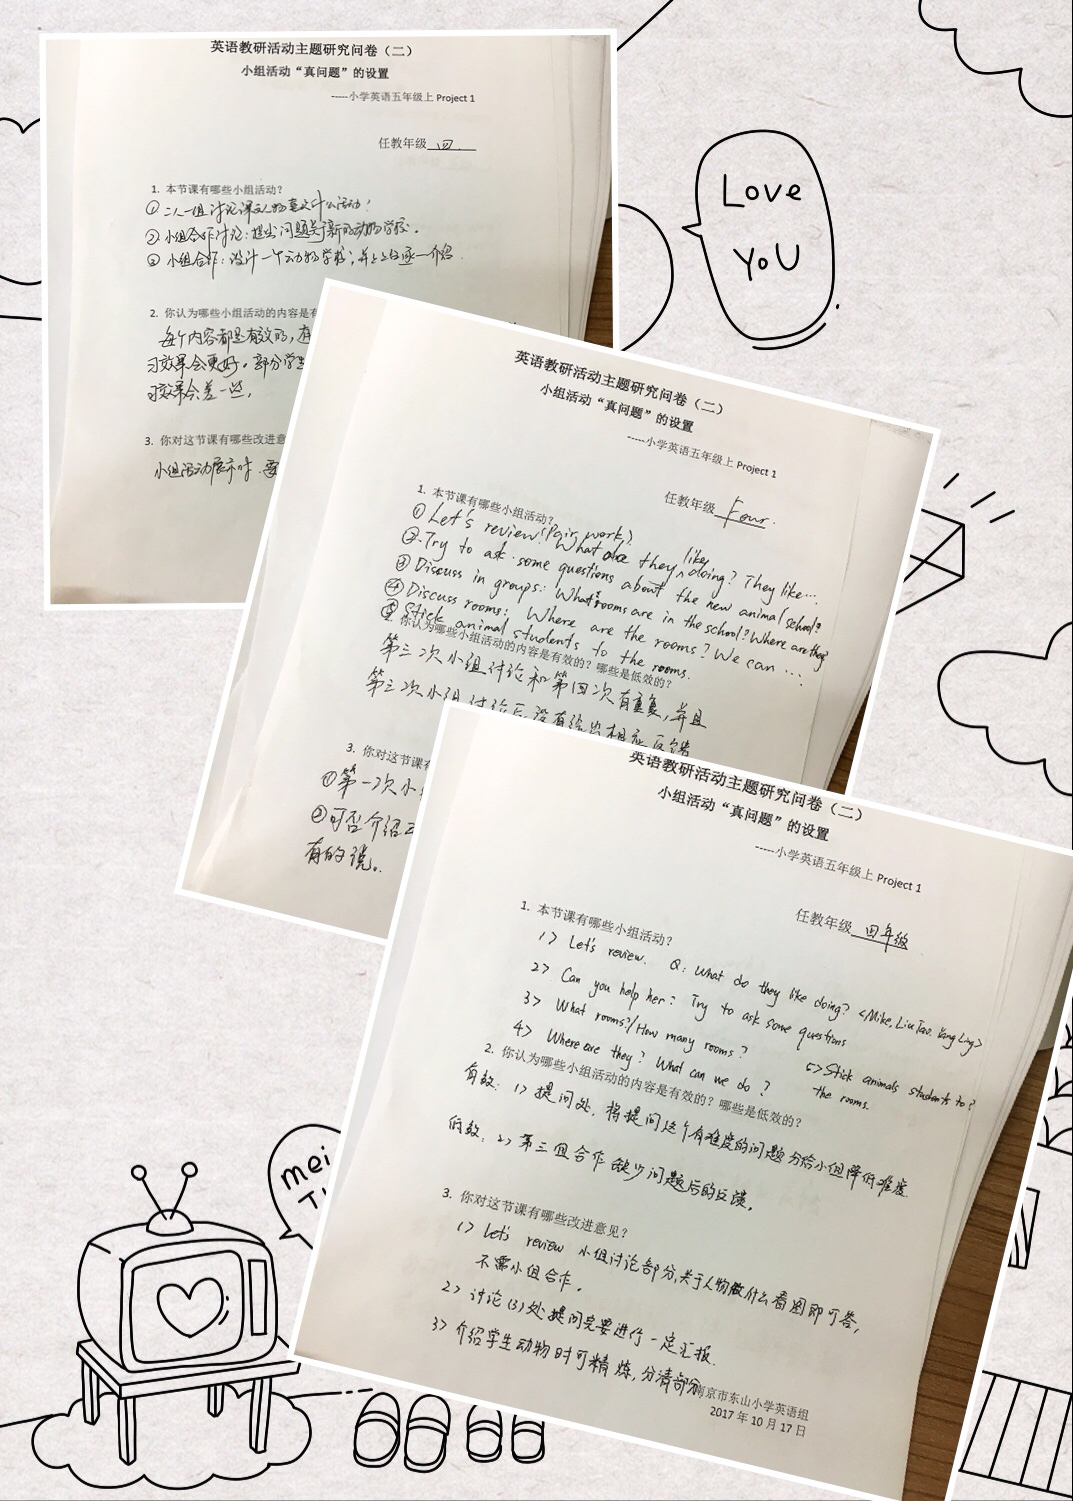 英语教研活动主题研究问卷（二）
小组活动“真问题”的设置
-----小学英语五年级上 Project 1
任教年级 四
1. 本节课有哪些小组活动？
① 二人一组讨论课文人物喜欢什么活动！
② 小组合作讨论：提出问题关于新的动物学校。
③ 小组合作：设计一个动物学校，并上台逐一介绍.
2. 你认为哪些小组活动的内容是有
每个内容都是有效的，
习效果会更好。部分学生
习效果会差一些。
3. 你对这节课有哪些改进意
小组活动展示时，要
Love
YoU
英语教研活动主题研究问卷（二）
小组活动“真问题”的设置
-----小学英语五年级上 Project 1
任教年级 Four.
1. 本节课有哪些小组活动？
① Let's review! (Pair work) What do they like doing? They like...
② Try to ask some questions about the new animal school?
③ Discuss in groups: What rooms are in the school? Where are they?
④ Discuss rooms: Where are the rooms? We can ...
⑤ Stick animal students to the rooms.
2. 你认为哪些小组活动的内容是有效的？哪些是低效的？
第三次小组讨论和第四次有重复，并且
第三次小组讨论后没有给出相应反馈
3. 你对这节课有
①第一次小
②可否介绍
有的说。
英语教研活动主题研究问卷（二）
小组活动“真问题”的设置
-----小学英语五年级上 Project 1
任教年级 四年级
1. 本节课有哪些小组活动？
1> Let's review. Q: What do they like doing? <Mike, Liu Tao. Yang Ling>
2> Can you help her? Try to ask some questions
3> What rooms?/How many rooms?
4> Where are they? What can we do?
5> Stick animals students to?
the rooms.
2. 你认为哪些小组活动的内容是有效的？哪些是低效的？
有效：1> 提问处，将提问这个有难度的问题分给小组降低难度
低效：2> 第三组合作缺少问题后的反馈。
3. 你对这节课有哪些改进意见？
1> Let's review 小组讨论部分，关于人物做什么看图即可答，
不需小组合作。
2> 讨论(3)处提问完要进行一定汇报.
3> 介绍学生动物时可精炼，分清部分
南京市东山小学英语组
2017 年 10 月 17 日
mei